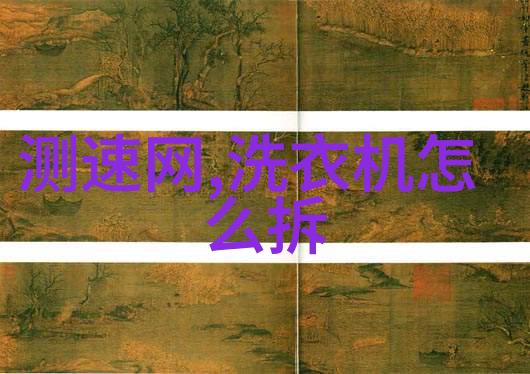 测速网,洗衣机怎
么拆